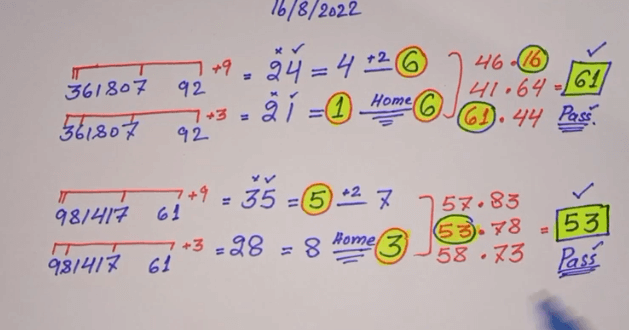 16/8/2022
+9
361807 92 = 24 = 4 +2 6 46.16
41.64 = 61 Pass
+3
361807 92 = 21 = 1 Home 6 61.44
+9
981417 61 = 35 = 5 +2 7 57.83
53.78 = 53 Pass
+3
981417 61 = 28 = 8 Home 3 58.73